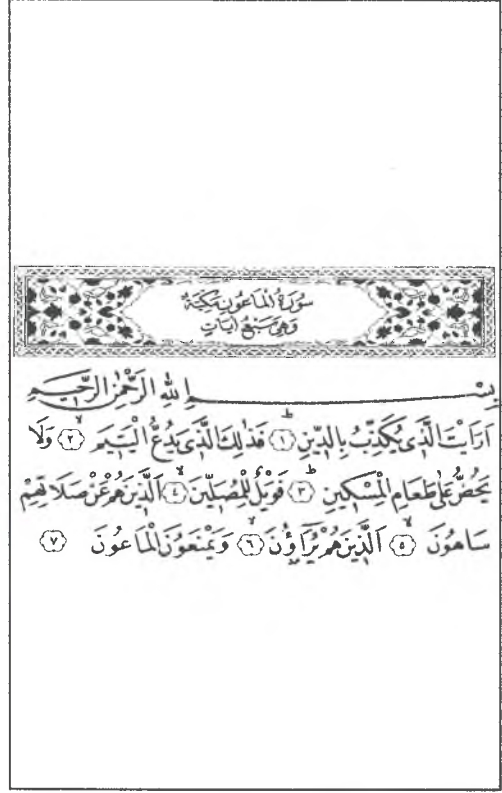 سُورَةُ الْمَاعُونِ مَكِّيَّةٌ
وَهِيَ سَبْعُ اٰيَاتٍ
بِسْمِ اللّٰهِ الرَّحْمٰنِ الرَّحٖيمِ
اَرَاَيْتَ الَّذٖى يُكَذِّبُ بِالدّٖينِ ﴿١﴾ فَذٰلِكَ الَّذٖى يَدُعُّ الْيَتٖيمَ ﴿٢﴾ وَلَا
يَحُضُّ عَلٰى طَعَامِ الْمِسْكٖينِ ﴿٣﴾ فَوَيْلٌ لِلْمُصَلّٖينَ ﴿٤﴾ اَلَّذٖينَ هُمْ عَنْ صَلَاتِهِمْ
سَاهُونَ ﴿٥﴾ اَلَّذٖينَ هُمْ يُرَاؤُنَ ﴿٦﴾ وَيَمْنَعُونَ الْمَاعُونَ ﴿٧﴾